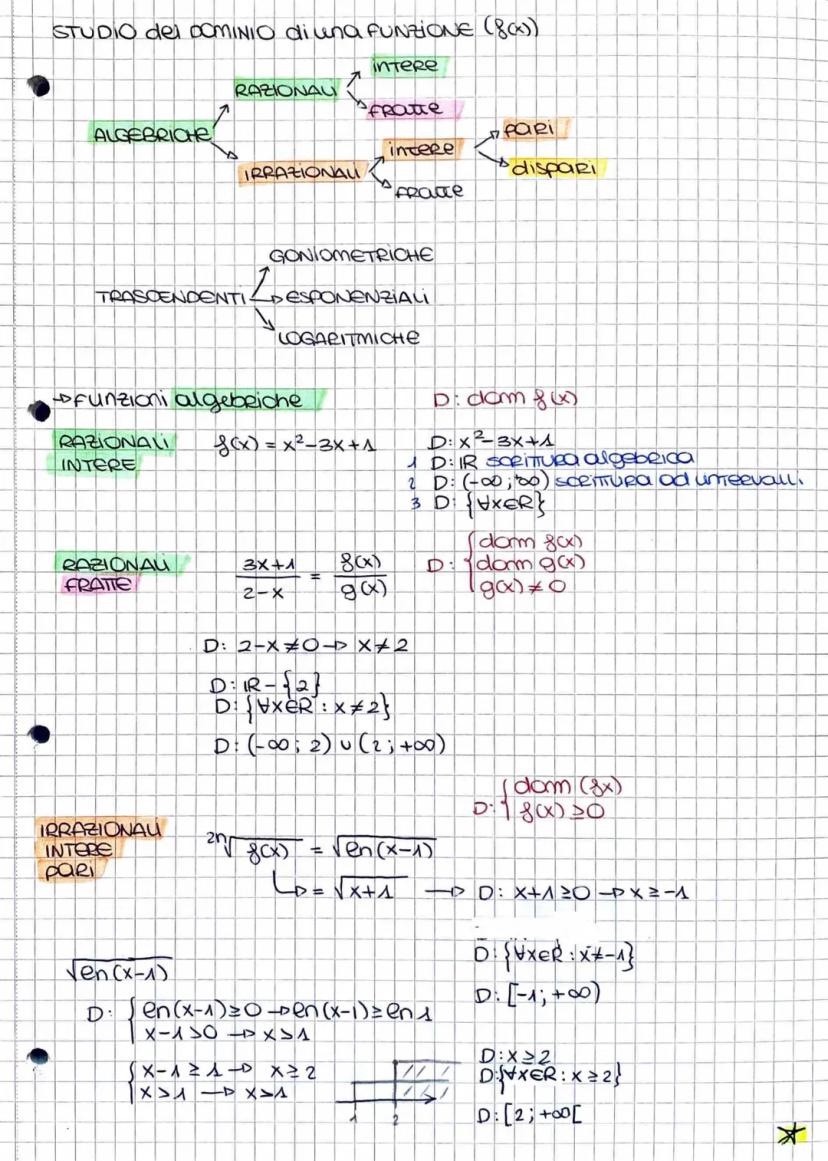 STUDIO del DOMINIO di una FUNZIONE (f(x))
ALGEBRICHE
RAZIONALI
intere
fratte
IRRAZIONALI
intere
pari
dispari
fratte
TRASCENDENTI
GONIOMETRICHE
ESPONENZIALI
LOGARITMICHE
→ funzioni algebriche
D: dom f(x)
RAZIONALI INTERE
f(x) = x²-3x+1
D: x²-3x+1
1 D: ℝ scrittura algebrica
2 D: (-∞; ∞) scrittura ad intervalli.
3 D: {∀x∈R}
RAZIONALI FRATTE
3x+1 / 2-x = f(x) / g(x)
D: { dom f(x)
dom g(x)
g(x) ≠ 0
D: 2-x≠0 → x≠2
D: ℝ-{2}
D: {∀x∈R : x≠2}
D: (-∞; 2) ∪ (2; +∞)
D: { dom (fx)
f(x) ≥0
IRRAZIONALI
INTERE
PARI
2n√f(x) = √ln(x-1)
↳ = √x+1 → D: x+1≥0 → x≥-1
D: {∀x∈R : x≠-1}
D: [-1; +∞)
√ln(x-1)
D: { ln(x-1)≥0 → ln(x-1)≥ln1
x-1>0 → x>1
{ x-1≥1 → x≥2
x>1 → x>1
1 2
D: x≥2
D: {∀x∈R : x≥2}
D: [2; +∞[